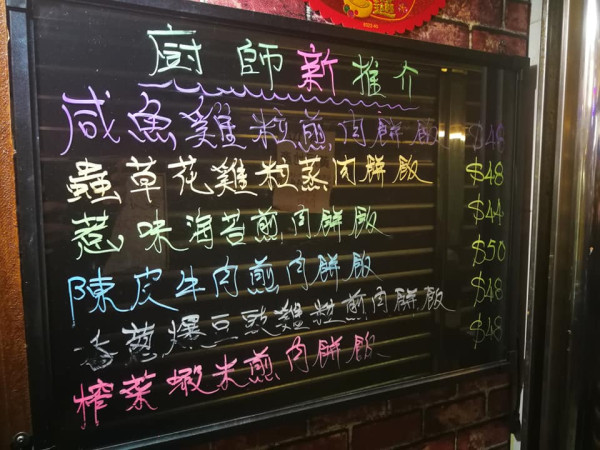 廚師新推介
咸魚雞粒煎肉餅飯 $48
蟲草花雞粒蒸肉餅飯 $48
惹味海苔煎肉餅飯 $44
陳皮牛肉煎肉餅飯 $50
香葱爆豆豉雞粒煎肉餅飯 $48
榨菜蝦米煎肉餅飯 $48